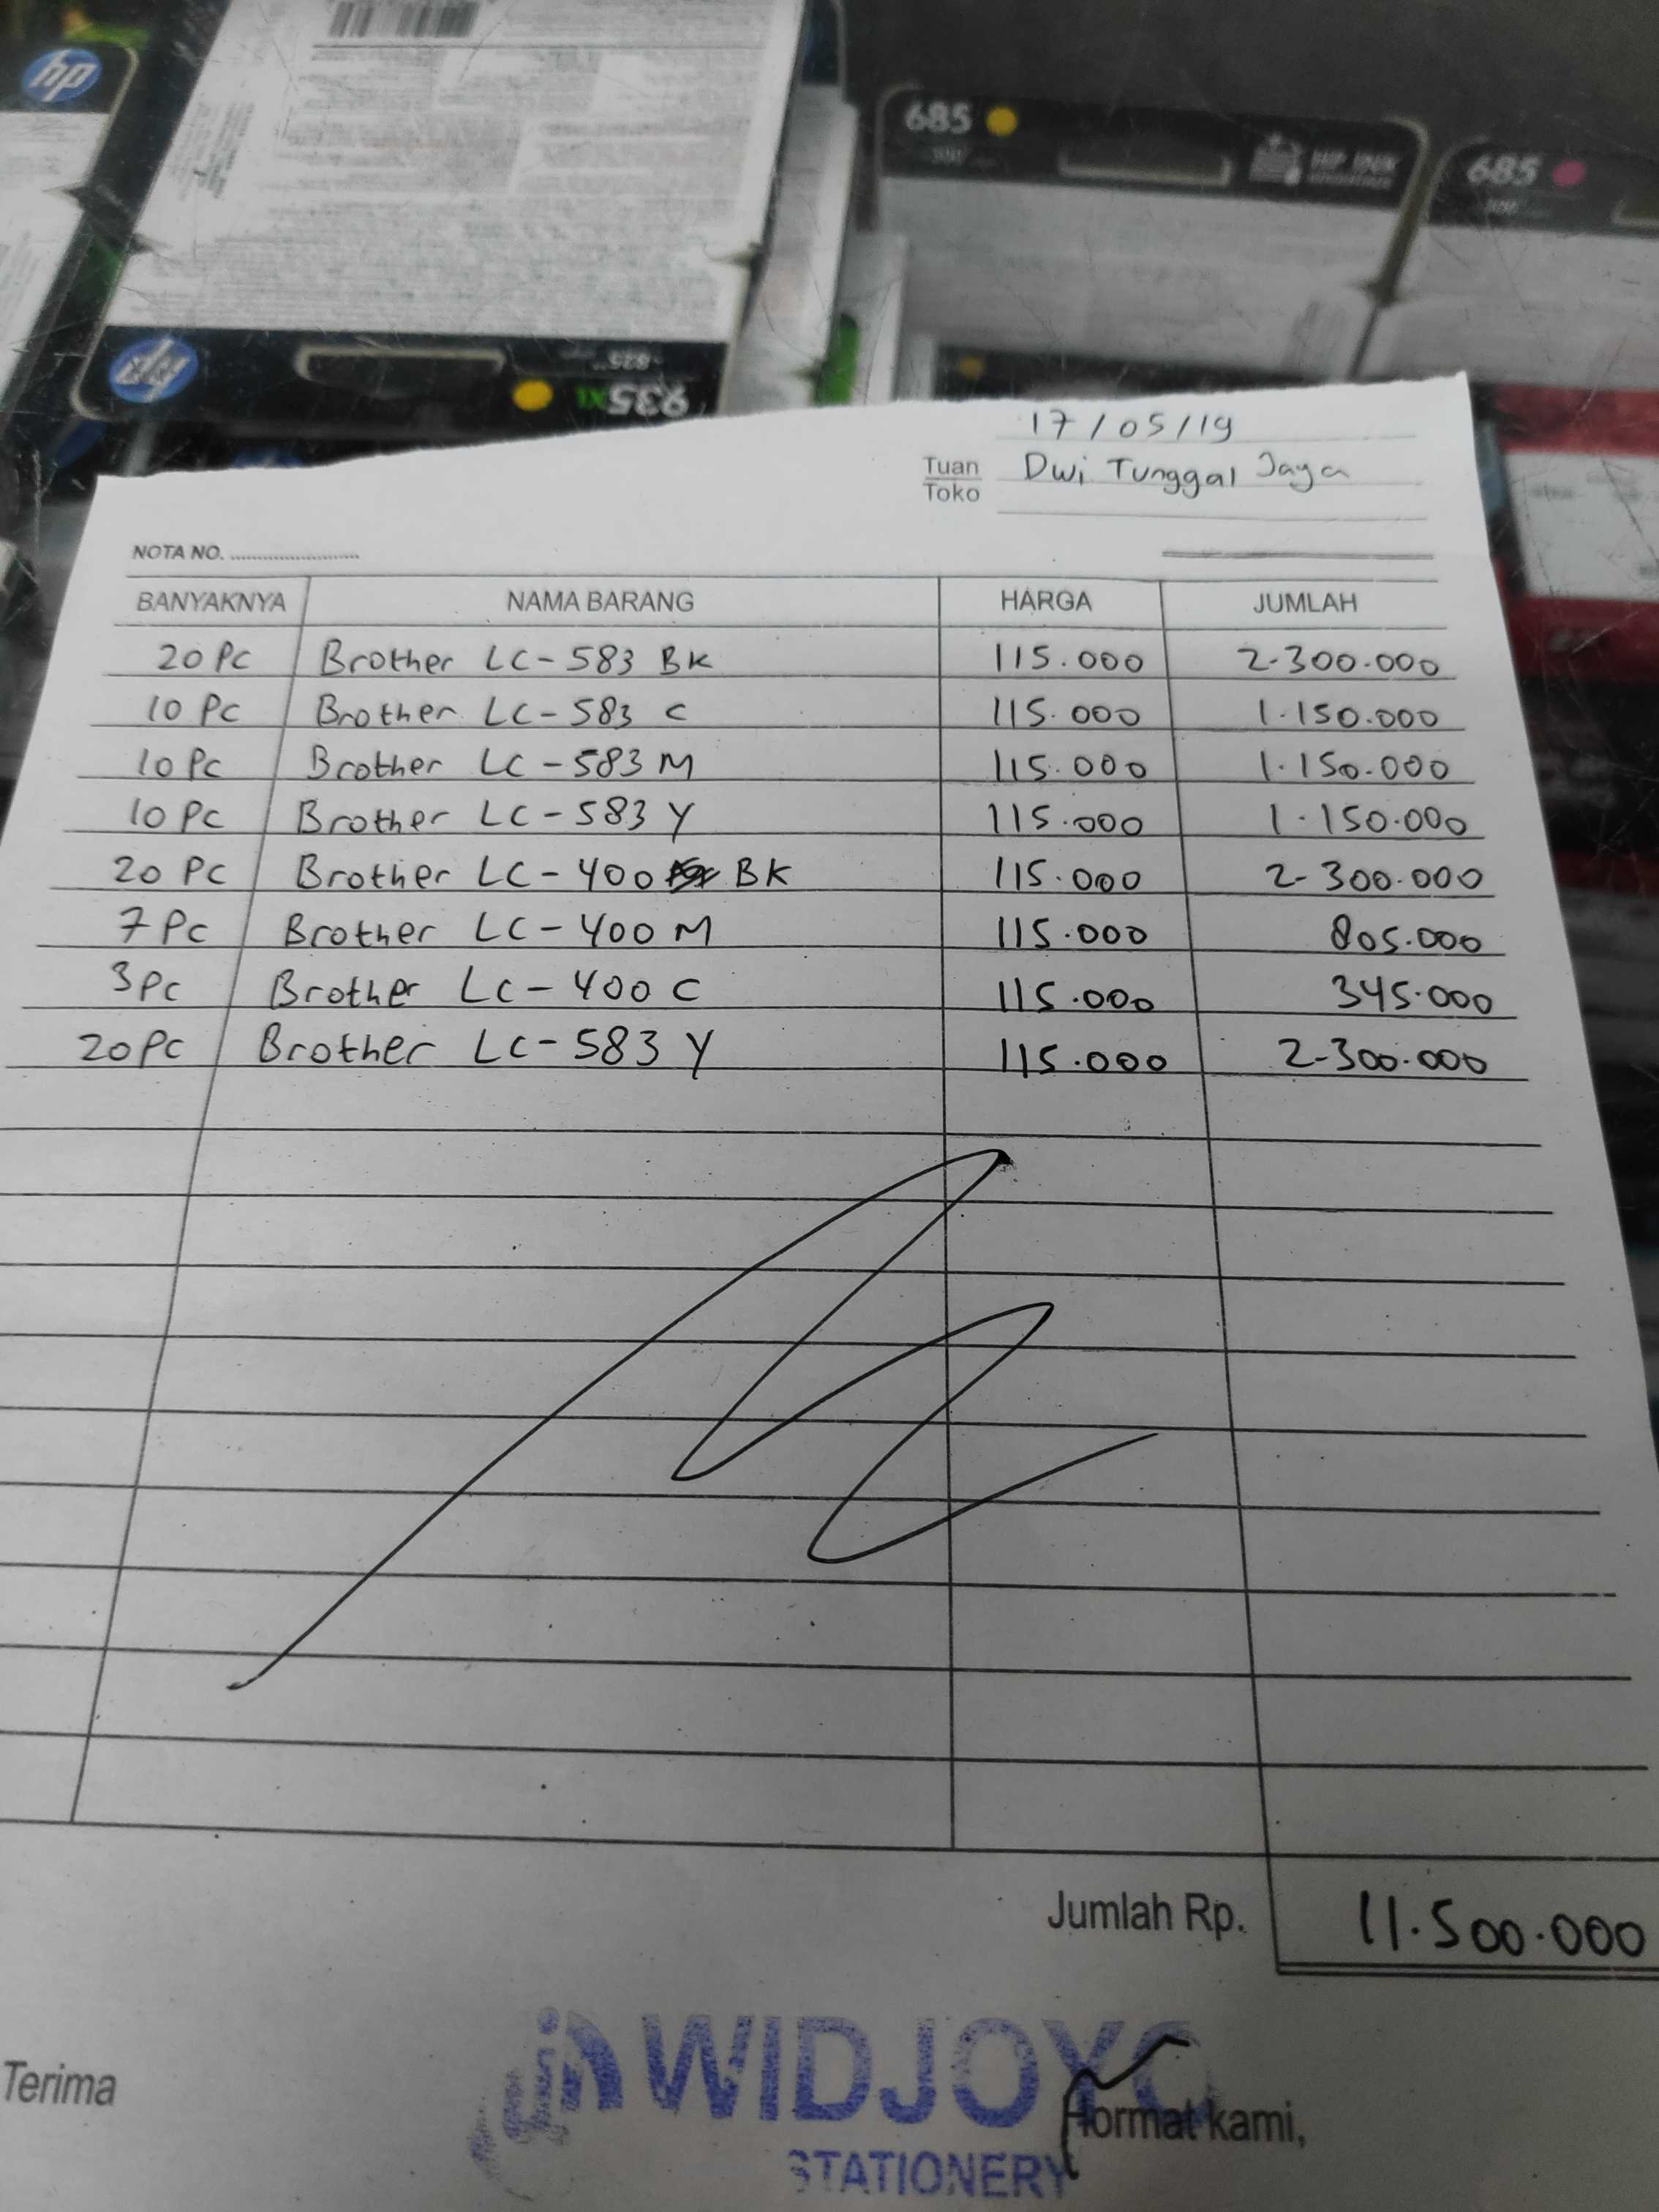 hp
685
HP INK
685
hp
935XL
17/05/19
Tuan Dwi Tunggal Jaya
Toko
NOTA NO. ........................
BANYAKNYA NAMA BARANG HARGA JUMLAH
20 Pc Brother LC-583 BK 115.000 2.300.000
10 Pc Brother LC-583 C 115.000 1.150.000
10 Pc Brother LC-583 M 115.000 1.150.000
10 Pc Brother LC-583 Y 115.000 1.150.000
20 Pc Brother LC-400 BK 115.000 2.300.000
7 Pc Brother LC-400 M 115.000 805.000
3 Pc Brother LC-400 C 115.000 345.000
20 Pc Brother LC-583 Y 115.000 2.300.000
Jumlah Rp. 11.500.000
WIDJOYO
Terima Hormat kami,
STATIONERY